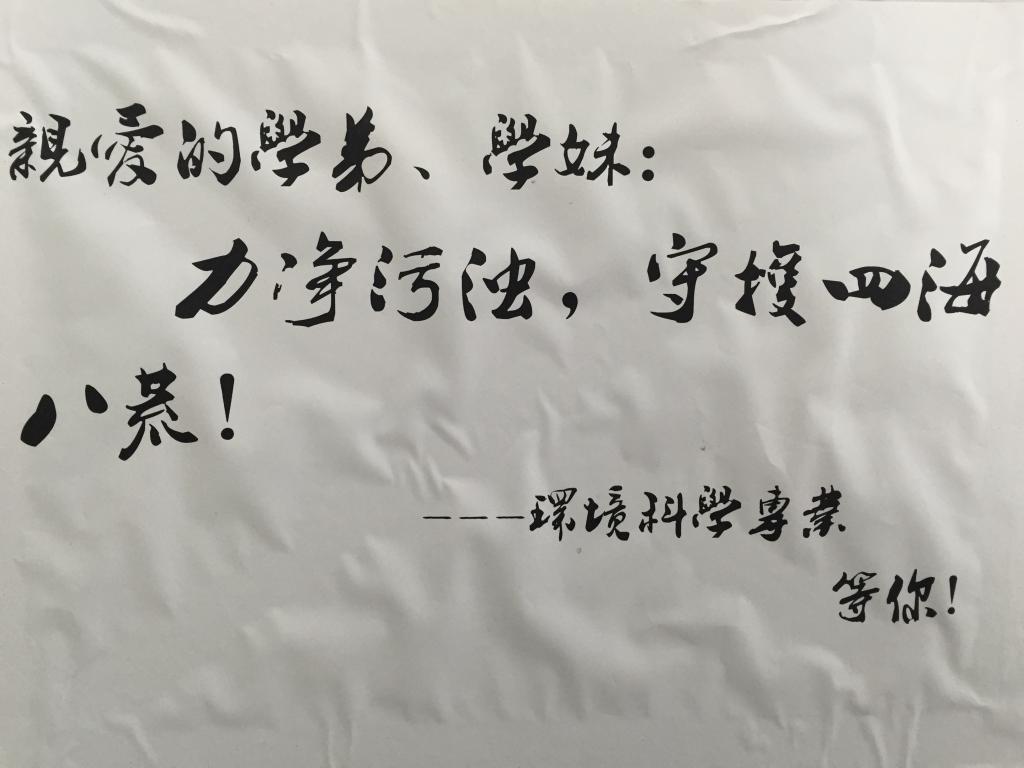 親愛的學弟、學妹：
力净污浊，守擭四海
八荒！
---環境科學專業
等你！